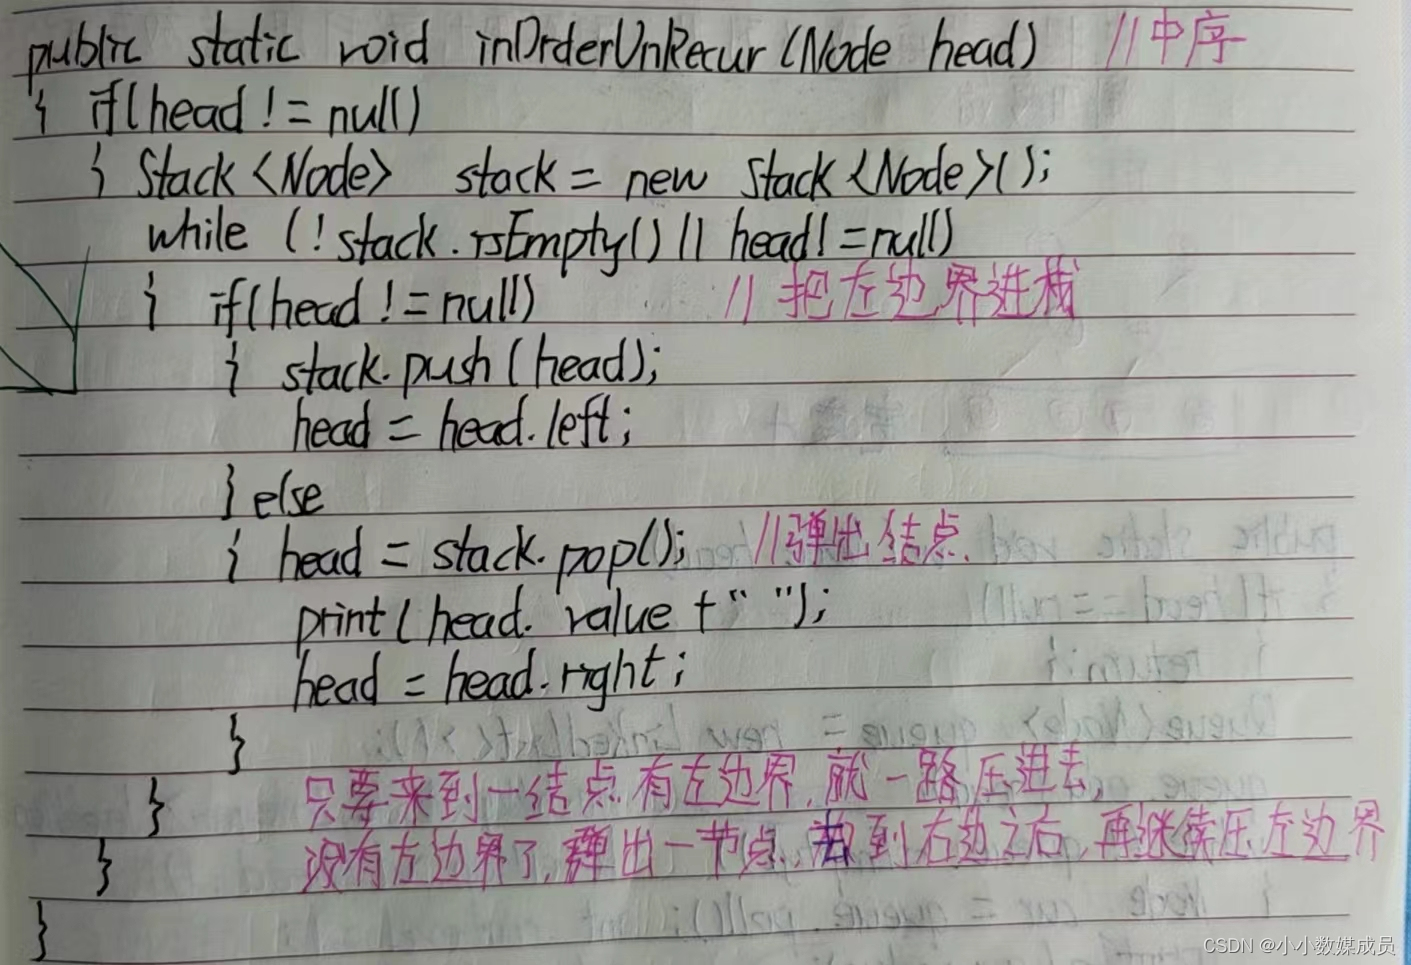 public static void inOrderUnRecur (Node head) //中序
{ if(head != null)
{ Stack <Node> stack = new Stack <Node>();
while (! stack.isEmpty() || head! =null)
{ if(head != null) // 把左边界进栈
{ stack.push (head);
head = head.left;
} else
{ head = stack.pop(); //弹出结点.
print( head. value +" ");
head = head.right;
}
} 只要来到一结点有左边界,就一路压进去,
} 没有左边界了,弹出一节点,去到右边之后,再继续压左边界
}
CSDN @小小数媒成员